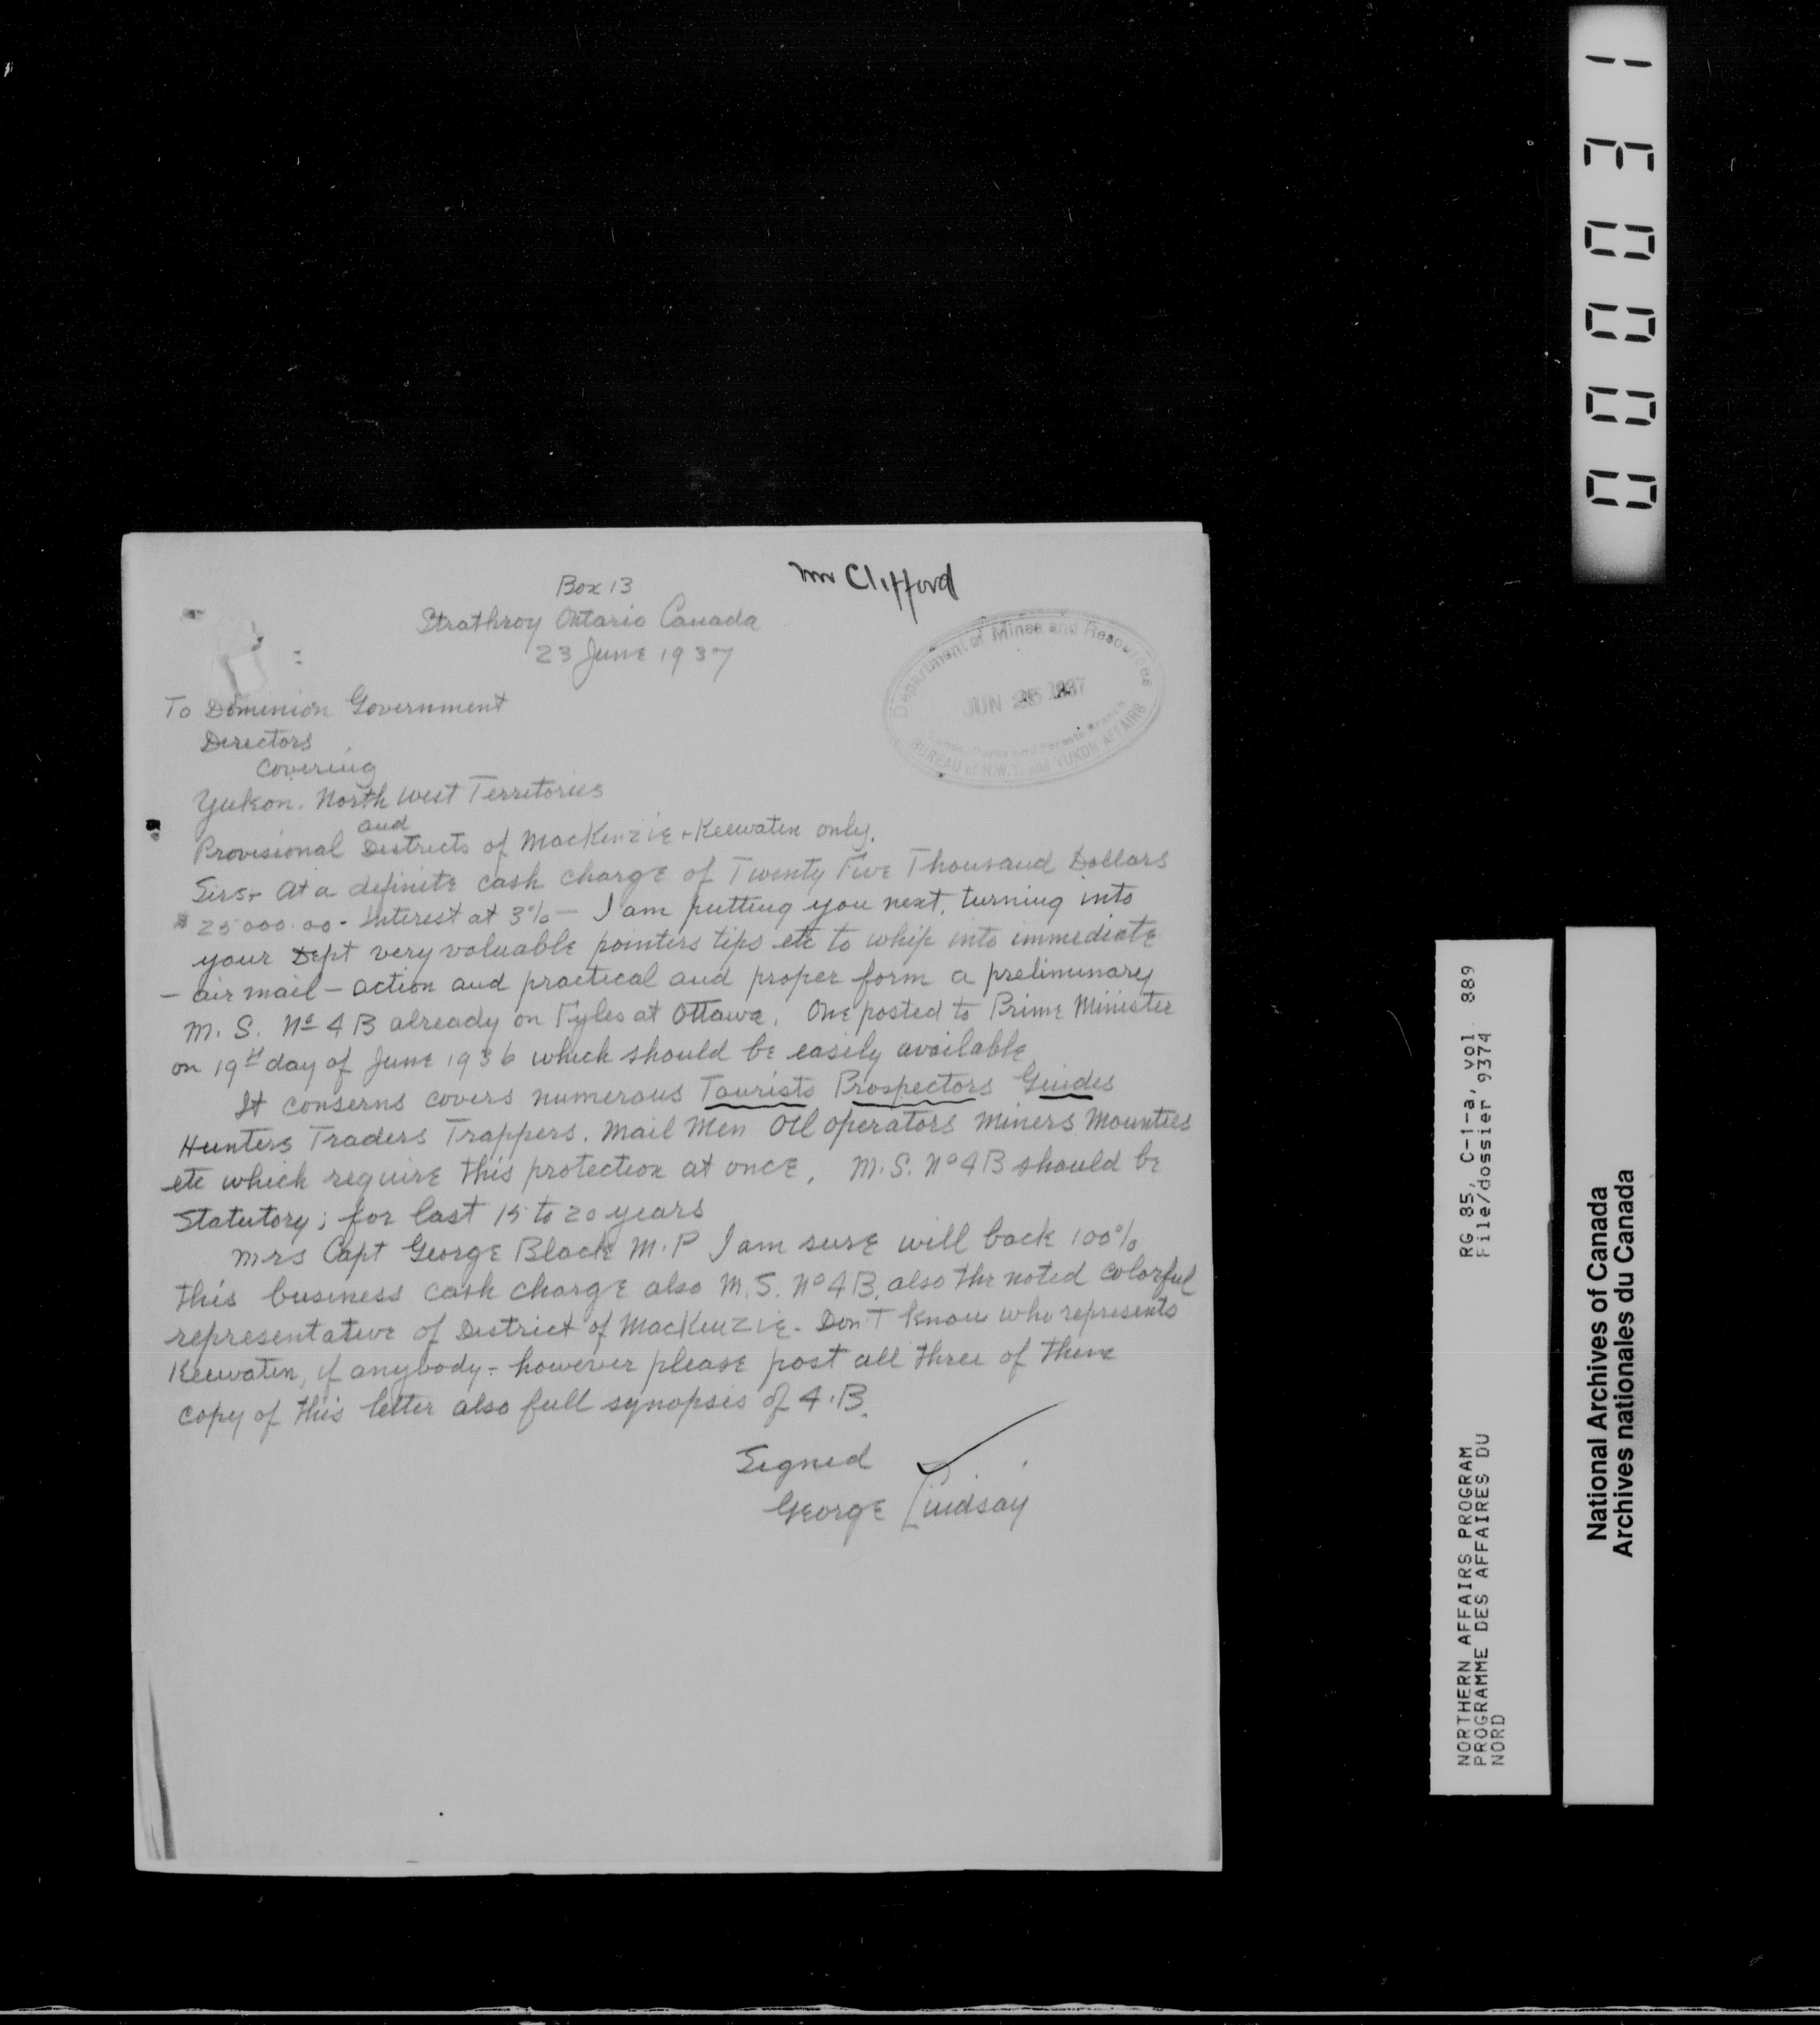 Mr Clifford
Box 13
Strathroy Ontario Canada
23 June 1937
Department of Mines and Resources
JUN 1937
Lands Parks and Forests Branch
BUREAU of N.W.T. and YUKON AFFAIRS
To Dominion Government
Directors
Covering
Yukon. North West Territories
and
Provisional Districts of MacKenzie + Keewatin only.
Sirs:- At a definite cash charge of Twenty Five Thousand Dollars
$25000.00 - Interest at 3% - I am putting you next, turning into
your Dept very valuable pointers tips etc to whip into immediate
- air mail - action and practical and proper form a preliminary
M. S. No 4 B already on Fyles at Ottawa. One posted to Prime Minister
on 19th day of June 1936 which should be easily available
It conserns covers numerous Tourists Prospectors Guides
Hunters Traders Trappers. Mail Men Oil operators Miners Mounties
etc which require this protection at once, M.S. No 4B should be
Statutory; for last 15 to 20 years
Mrs Capt George Black M.P I am sure will back 100%
this business cash charge also M.S. No 4B, also the noted colorful
representative of District of MacKenzie. Don't know who represents
Keewatin, if anybody - however please post all three of them
copy of this letter also full synopsis of 4.B.
Signed
George Lindsay
000031
RG 85, C-1-a, vol. 889
File/dossier 9374
NORTHERN AFFAIRS PROGRAM
PROGRAMME DES AFFAIRES DU
NORD
National Archives of Canada
Archives nationales du Canada